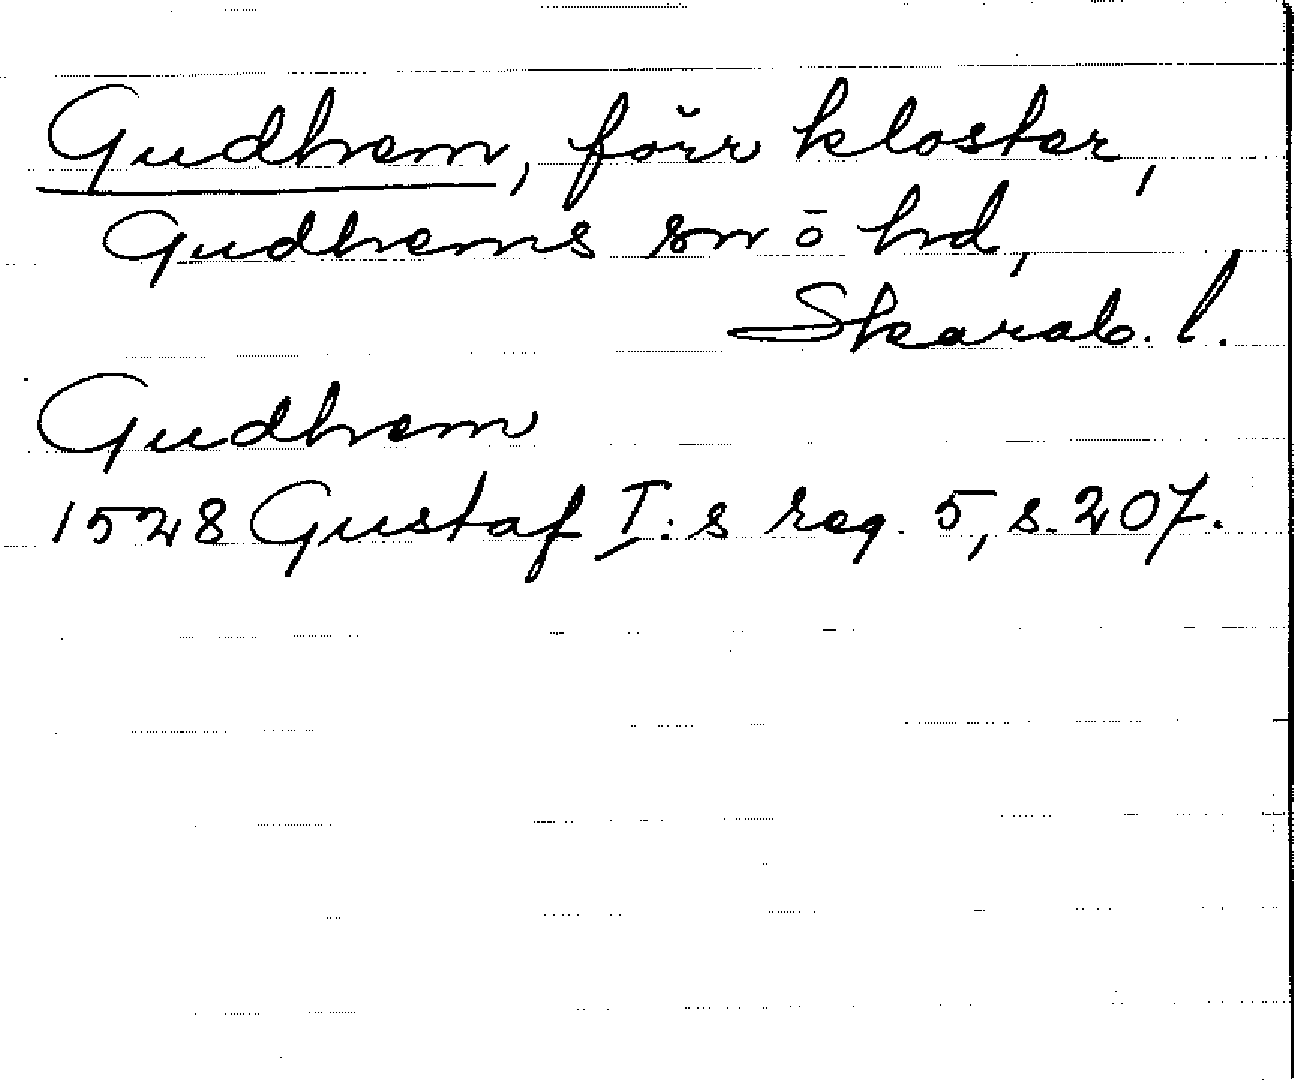 Gudhem, förr kloster,
Gudhems sn ō hd,
Skarab. l.
Gudhem
1528 Gustaf I:s reg. 5, s. 207.